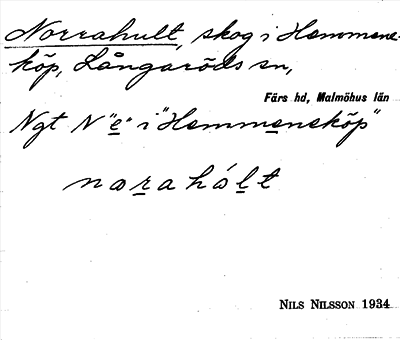 Norrahult, skog i Hemmene-
köp, Långaröds sn,
Färs hd, Malmöhus län
Ngt N "e" i "Hemmeneköp"
norahólt
NILS NILSSON 1934